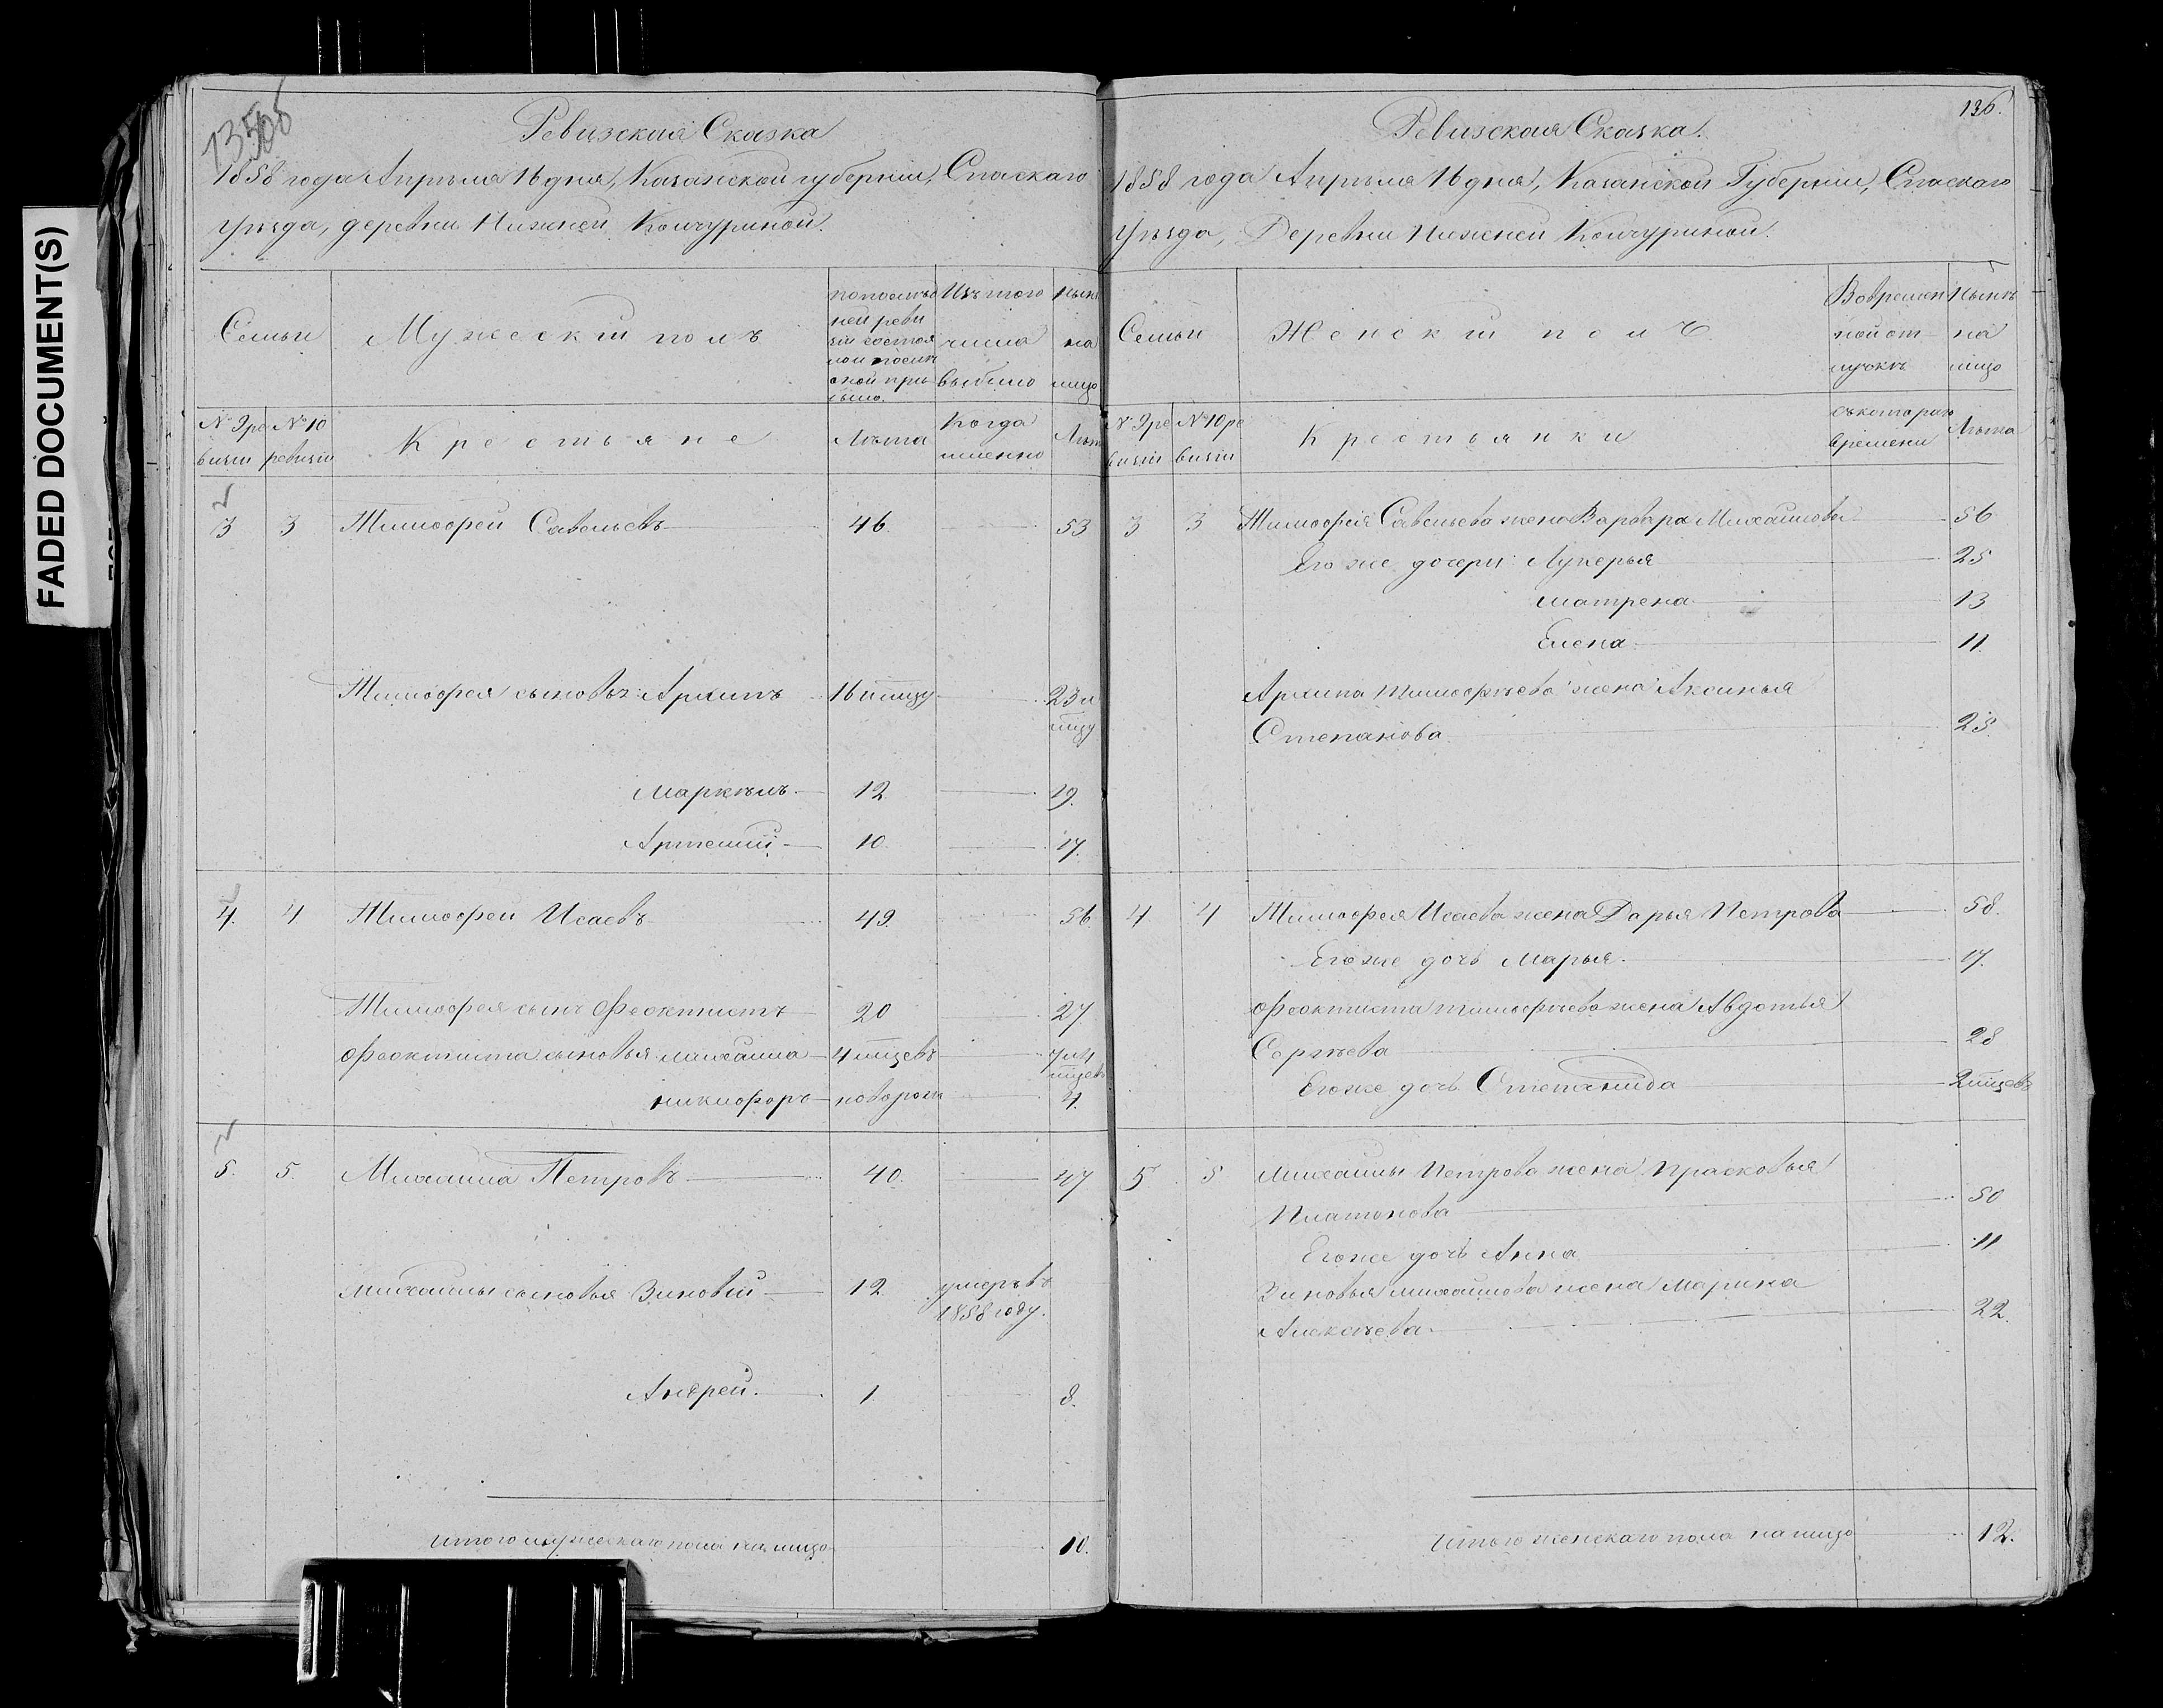 FADED DOCUMENT(S)
Ревизская Сказка
1858 года Апрѣля 16 дня, Казанской губерніи, Спаскаго
уѣзда, деревни Нижней Кочуриной.
Семьи
Мужескій полъ
Изъ того числа выбыло
ны на лицо
№ 9 ре визіи
№ 10 ревизіи
Крестьяне
Лѣта
Когда именно
Лѣт
3 3 Тимофей Савельевъ 46. 53
Тимофея сыновья: Архипъ 16 23
Маркелъ 12. 19.
Артемій 10. 17.
4. 4 Тимофей Исаевъ 49. 56
Тимофея сынъ Феоктистъ 20 27
Феоктиста сыновья Михаила 4 мѣсцевъ
Никифоръ новорож 4.
5. 5. Михаила Петровъ 40. 47
Михаилы сыновья Зиновій 12 умеръ въ
1858 году.
Андрей. 1. 8.
Итого мужескаго пола на лицо 10.
136.
Ревизская Сказка.
1858 года Апрѣля 16 дня, Казанской Губерніи, Спаскаго
Уѣзда, Деревни Нижней Кочуриной.
Семьи
Женскій полъ
Во времен ной от лучкѣ
Нынѣ на лицо
№ 9 ре визіи
№ 10 ре визіи
Крестьянки
съ котораго времени
Лѣта
3 3 Тимофея Савельева жена Варвара Михайлова 56
Его же дочери: Лукерья 25
Матрена 13
Елена 11
Архипа Тимофѣева жена Аксинья
Степанова 25.
4 4 Тимофея Исаева жена Дарья Петрова 58.
Его же дочь Марья. 17.
Феоктиста Тимофѣева жена Авдотья
Сергѣева 28
Его же дочь Степанида 2 мѣсцевъ
5 5 Михаилы Петрова жена Прасковья
Платонова 50
Его же дочь Анна 11
Зиновья Михайлова жена Марина
Алексѣева 22.
Итого женскаго пола на лицо 12.